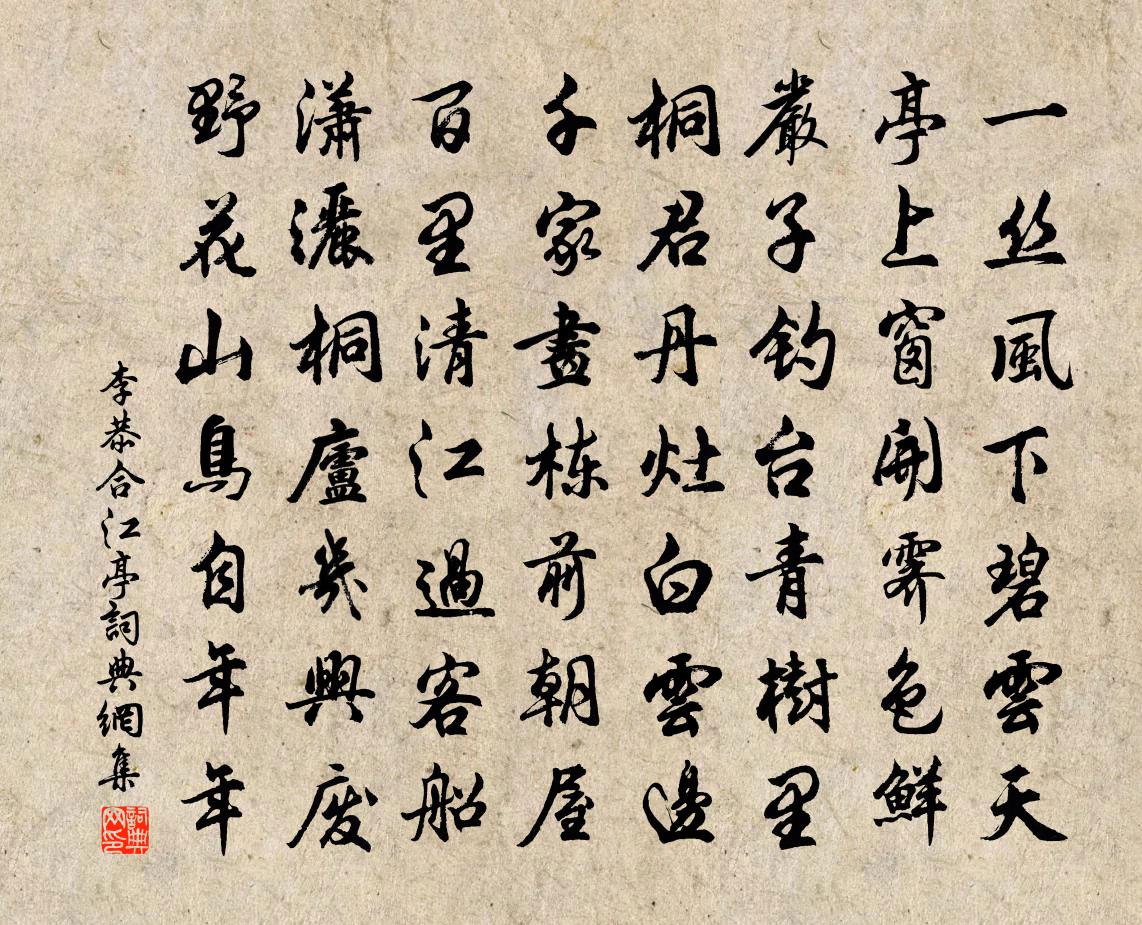 一丝風下碧雲天
亭上窗開霽色鮮
嚴子釣台青樹里
桐君丹灶白雲邊
千家畫栋前朝屋
百里清江過客船
瀟灑桐廬幾興廢
野花山鳥自年年
李恭合江亭詞典網集
詞典网印